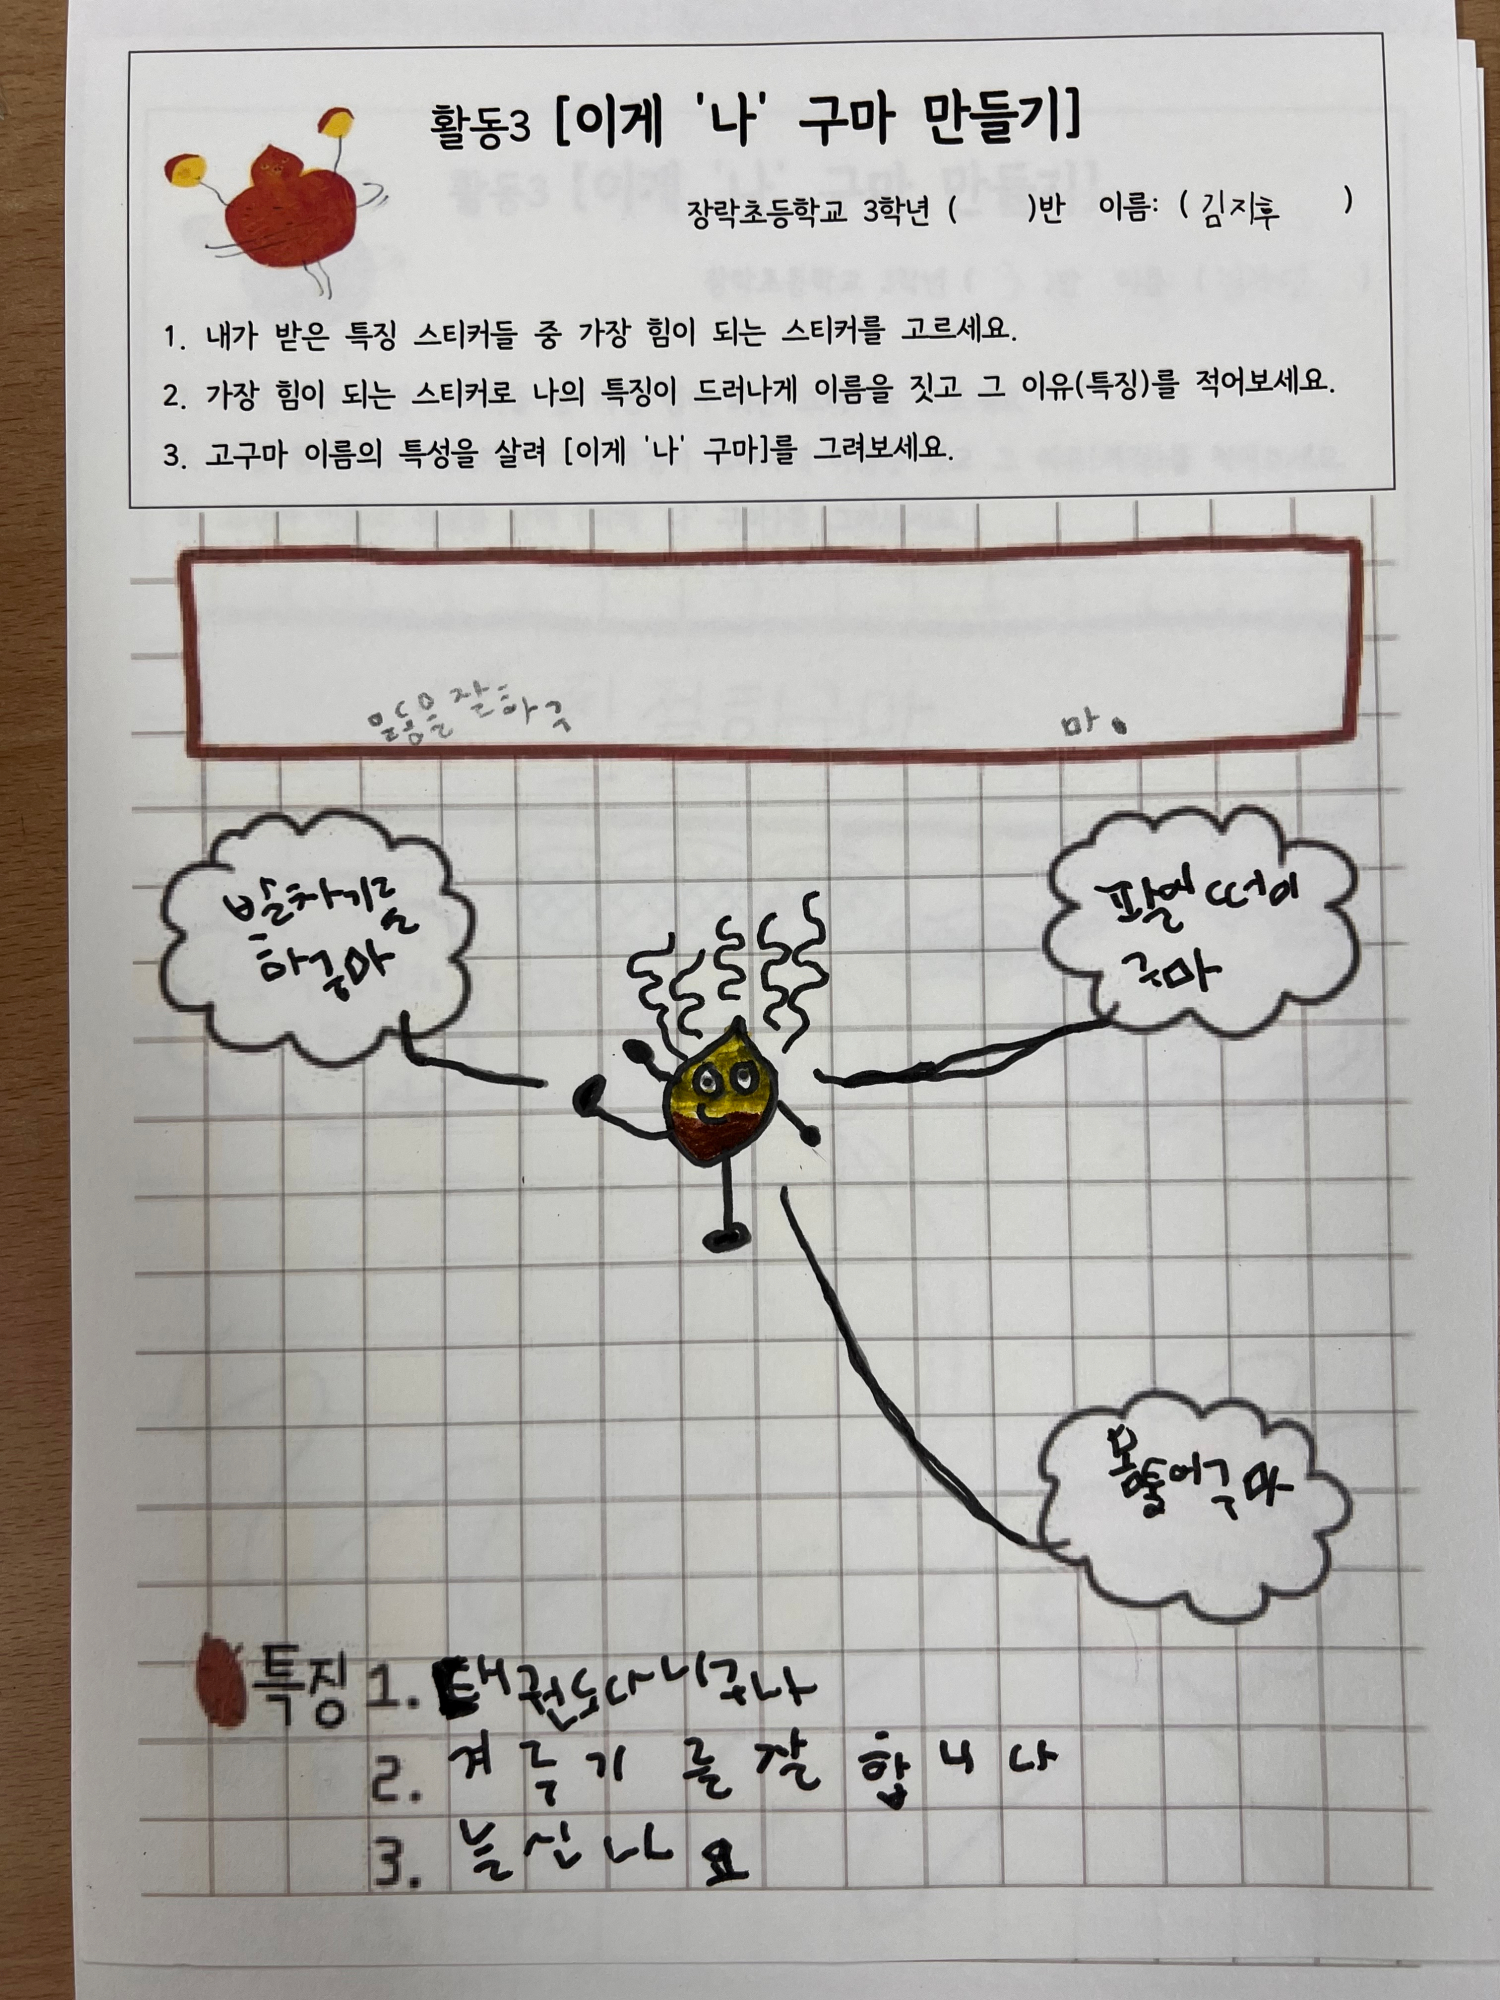 활동3 [이게 '나' 구마 만들기]
장락초등학교 3학년 ( )반 이름: ( 김지후 )
1. 내가 받은 특징 스티커들 중 가장 힘이 되는 스티커를 고르세요.
2. 가장 힘이 되는 스티커로 나의 특징이 드러나게 이름을 짓고 그 이유(특징)를 적어보세요.
3. 고구마 이름의 특성을 살려 [이게 '나' 구마]를 그려보세요.
잘하구 마.
발차기를
하구마
구마
특징 1. 태권도다니구나
2. 겨루기를 잘 합니다
3. 늘 신나요